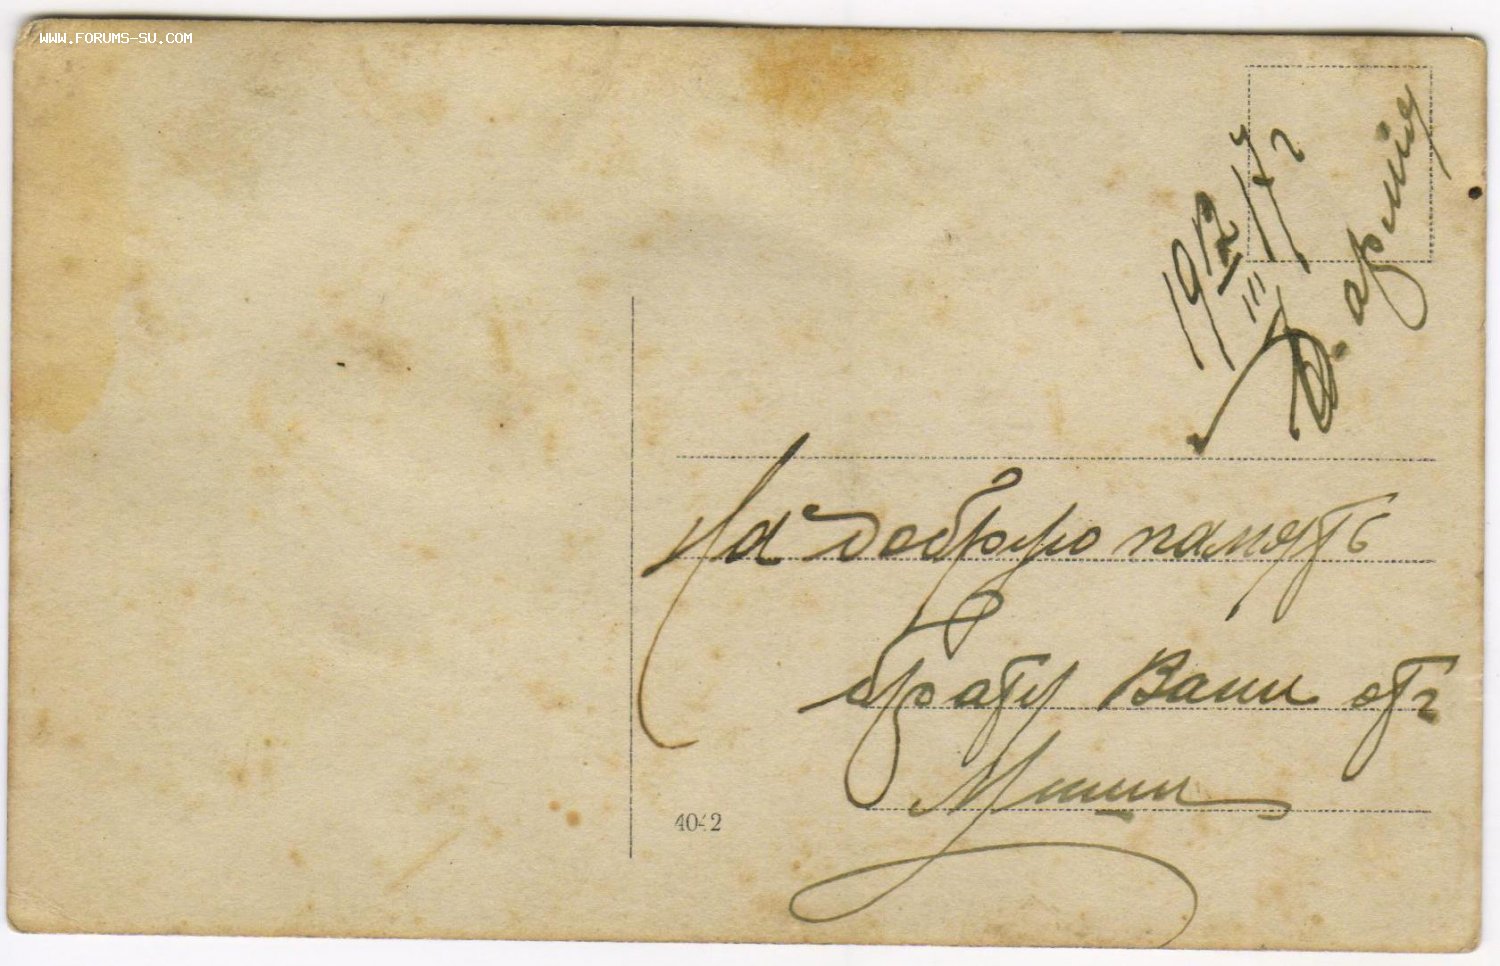 WWW.FORUMS-SU.COM
19 12/III 17 г
Д. армия
На добрую память
брату Вани отъ
Миши
4042